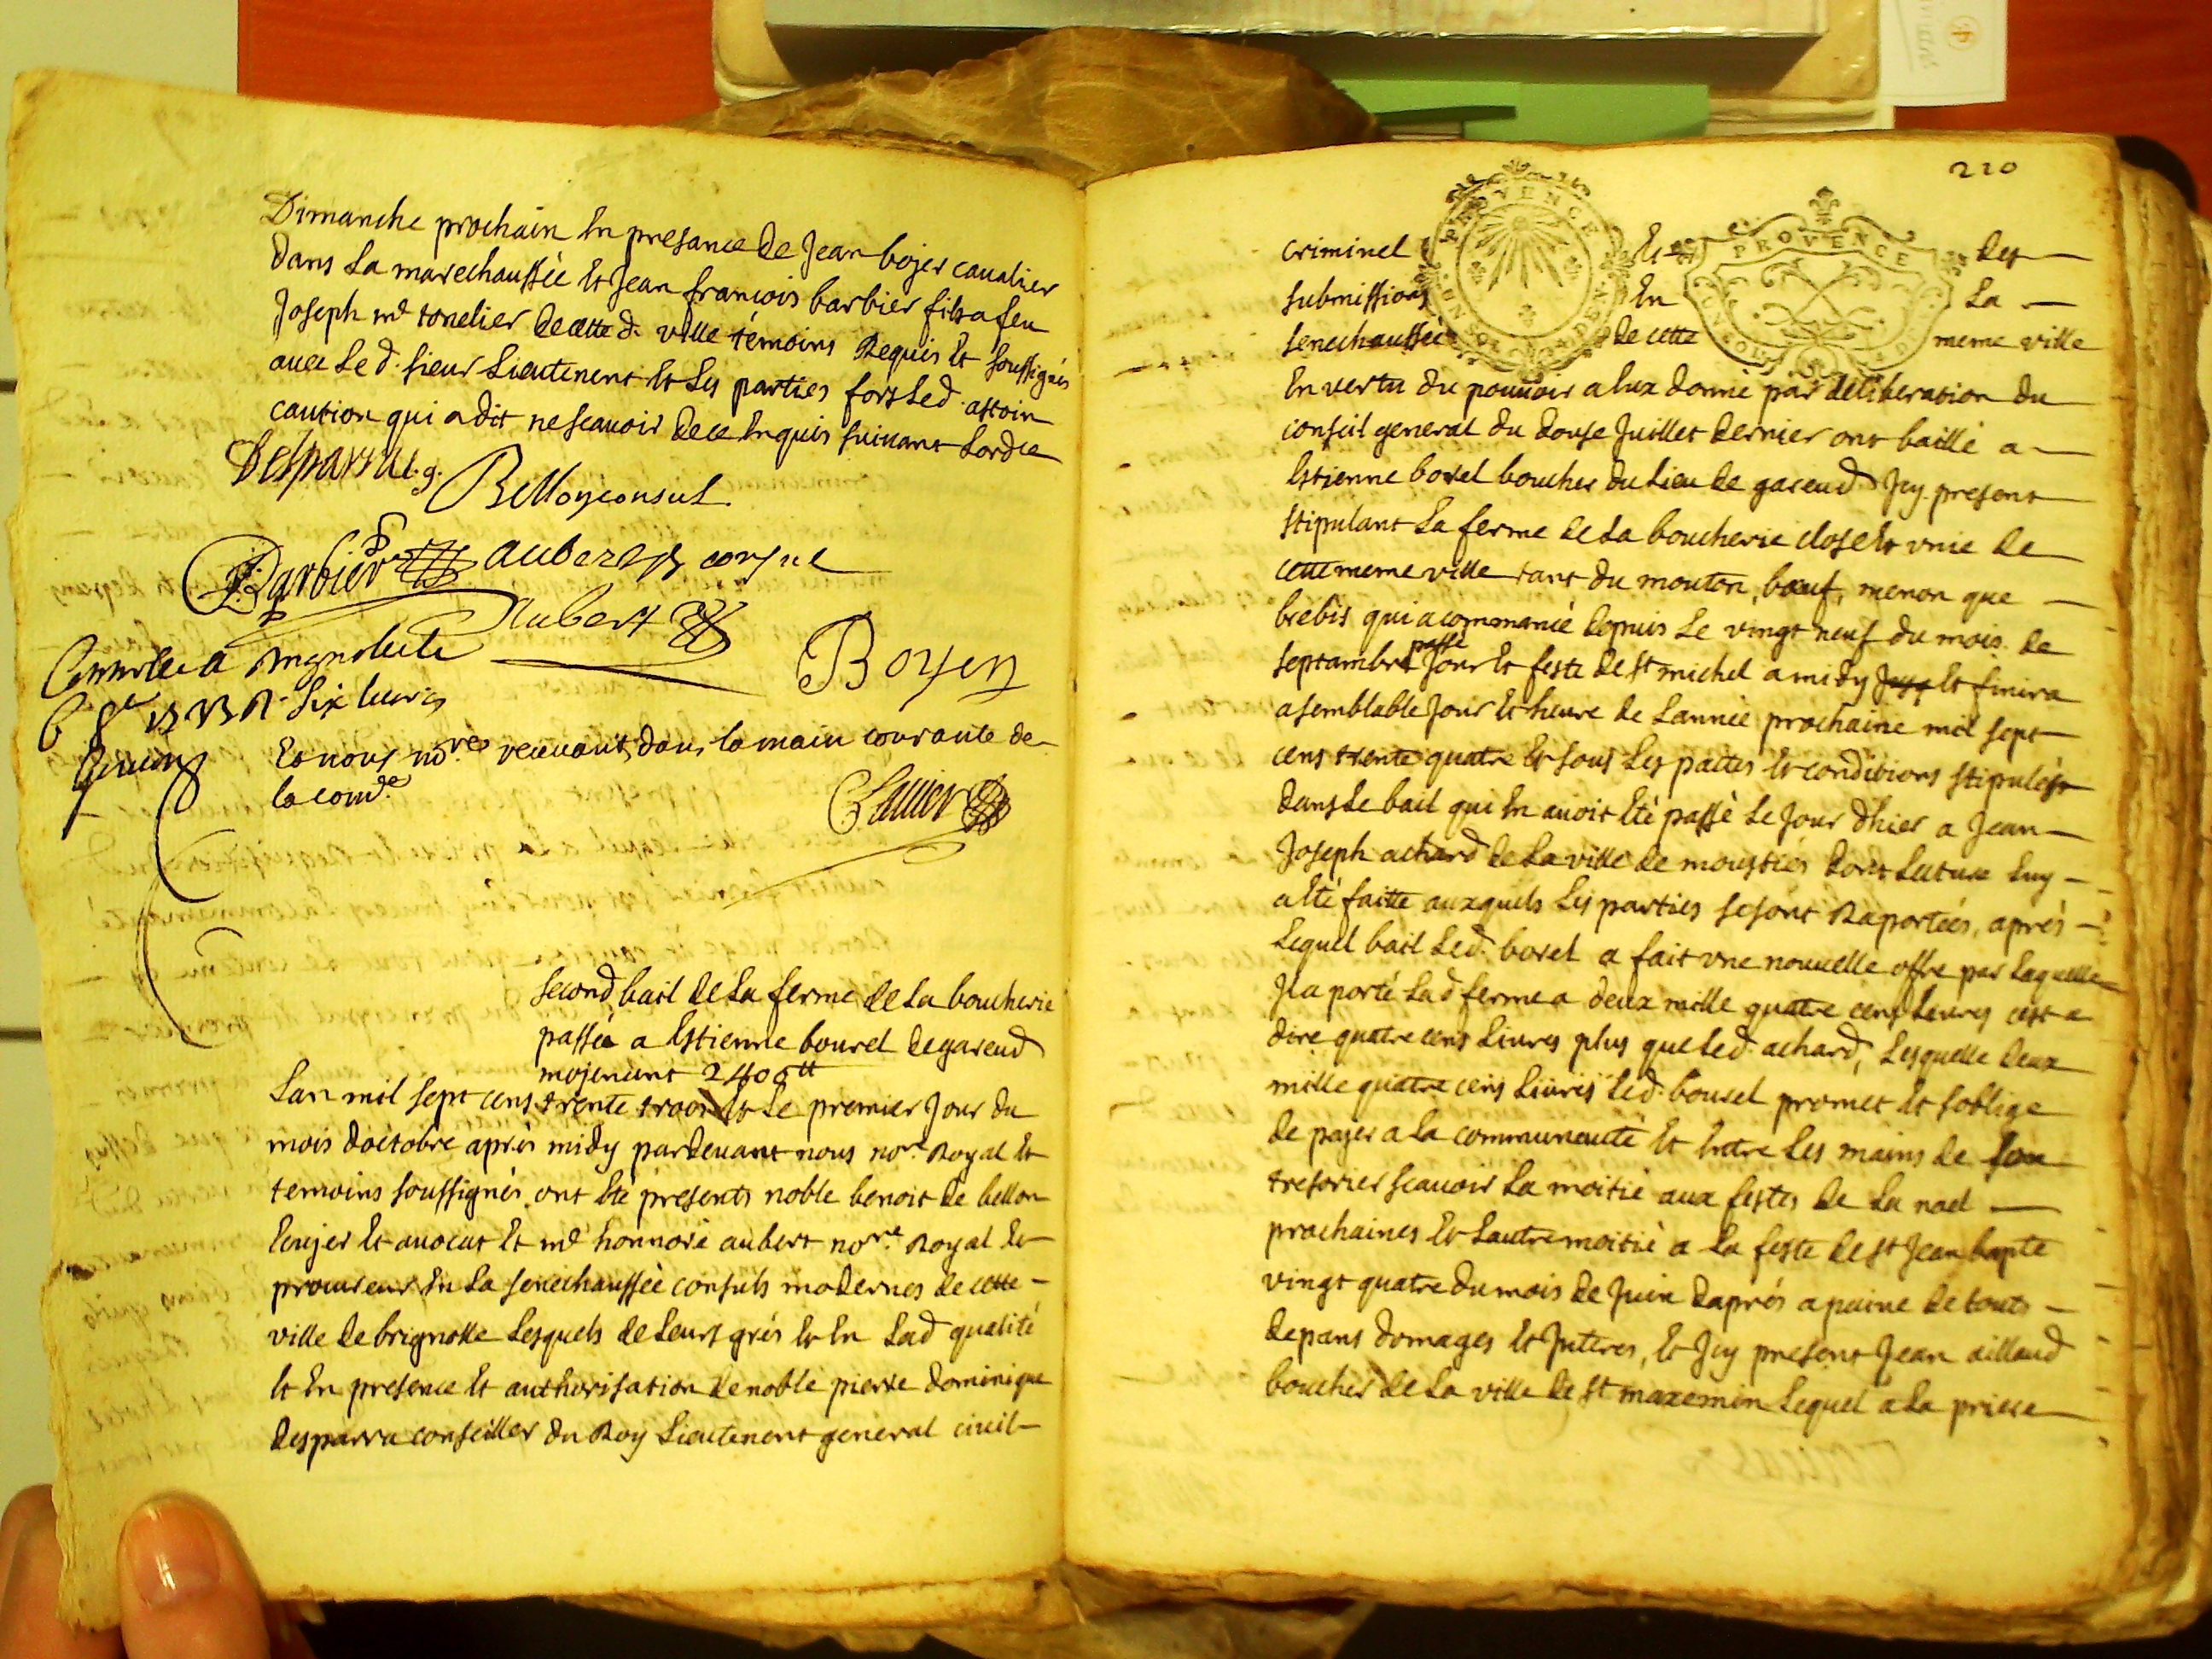 Dimanche prochain En presance de Jean bojer caualier
dans La marechaussée Et Jean francois barbier fils a feu
Joseph md tonelier de cette d. ville témoins Requis Et soussignés
auec Le d. sieur Lieutenent Et Les parties fors Led.
caution qui a dit ne scauoir de ce Enquis suiuant Lordre
Desparra l.g. Bellon consul
Barbier aubert consul
Aubert
Boyer
Controllé a
six liures
Et nous no.res receuant, dans la main courante de
la com.de
second bail de La ferme de La boucherie
passée a Estienne bourel de gareud
mojenent 2400 tt
Lan mil sept cens trente trois Et Le premier Jour du
mois doctobre aprés midy pardeuant nous no.re Royal Et
temoins soussignés ont Eté presents noble benoit de bellon
Ecujer Et auocat Et md honnoré aubert no.re Royal Et
procureur En La senechaussée consuls modernes de cette
ville de brignolle Lesquels de Leurs grés Et En Lad qualité
Et En presence Et authorisation de noble pierre dominique
desparra conseiller du Roy Lieutenent general ciuil
210
criminel Et des
PROVENCE
PROVENCE
submissions En La
senechaussée de cette meme ville
En vertu du pouuoir a Eux donné par deliberation du
conseil general du douse Juillet dernier ont baillé a
Estienne borel boucher du Lieu de gareud Jcy present
stipulant La ferme de La boucherie close Et vnie de
cette meme ville tant du mouton, bœuf, menon que
brebis qui a commancé depuis Le vingt neuf du mois de
septambre passé Jour Et feste de st michel a midy Et finira
a semblable Jour Et heure de Lannée prochaine mil sept
cens trente quatre Et sous Les pactes Et conditions stipulées
dans Le bail qui En auoit Eté passé Le Jour dhier a Jean
Joseph achard de La ville de moustiés dont Lecture Luy
a Eté faitte auxquels Les parties se sont Raportées, aprés
Lequel bail Led. borel a fait vne nouuelle offre par Laquelle
Jl a porté Lad ferme a deux mille quatre cens Liures cest a
dire quatre cens Liures plus que Led. achard, Lesquelle deux
mille quatre cens Liures Led. bourel promet Et soblige
de pajer a La communeauté Et Entre Les mains de son
tresorier scauoir La moitié aux festes de La noel
prochaines Et Lautre moitié a La feste de st Jean bapte
vingt quatre du mois de Juin daprés a peine de touts
depans domages Et Jnteres, Et Jcy present Jean aillaud
boucher de La ville de st maxemin Lequel a La priere